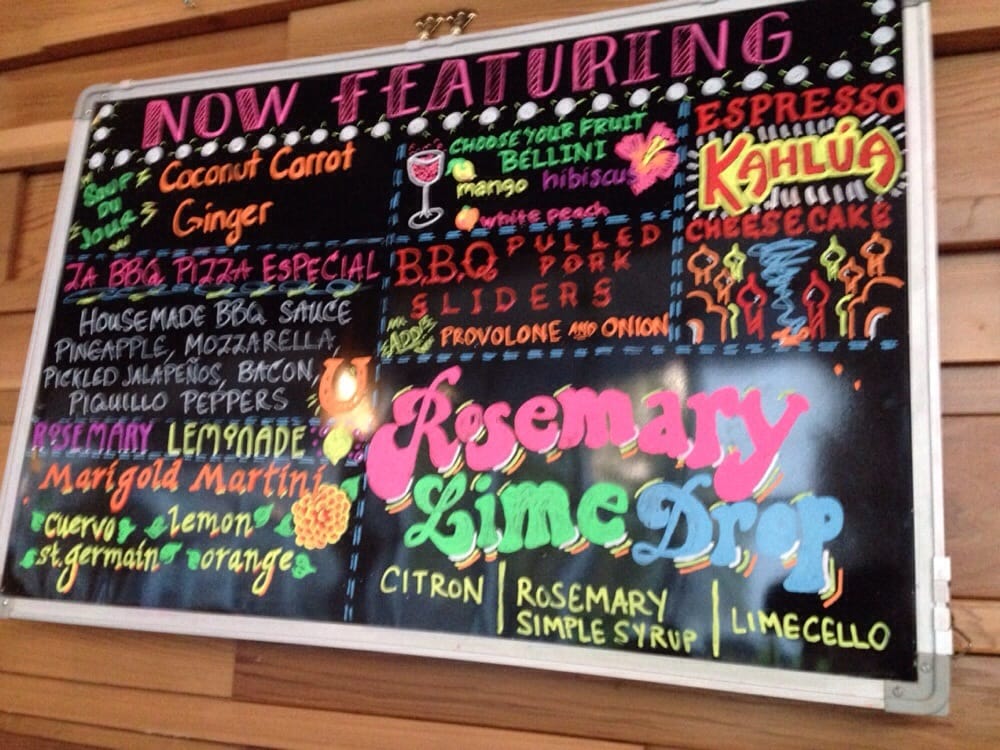 NOW FEATURING
SOUP DU JOUR
Coconut Carrot
Ginger
ZA BBQ PIZZA ESPECIAL
HOUSEMADE BBQ SAUCE
PINEAPPLE, MOZZARELLA,
PICKLED JALAPEÑOS, BACON,
PIQUILLO PEPPERS
ROSEMARY LEMONADE
Marigold Martini
cuervo lemon
st. germain orange
CHOOSE YOUR FRUIT
BELLINI
mango hibiscus
white peach
B.B.Q PULLED
PORK
SLIDERS
ADD PROVOLONE AND ONION
ESPRESSO
KAHLÚA
CHEESECAKE
Rosemary
Lime Drop
CITRON | ROSEMARY SIMPLE SYRUP | LIMECELLO